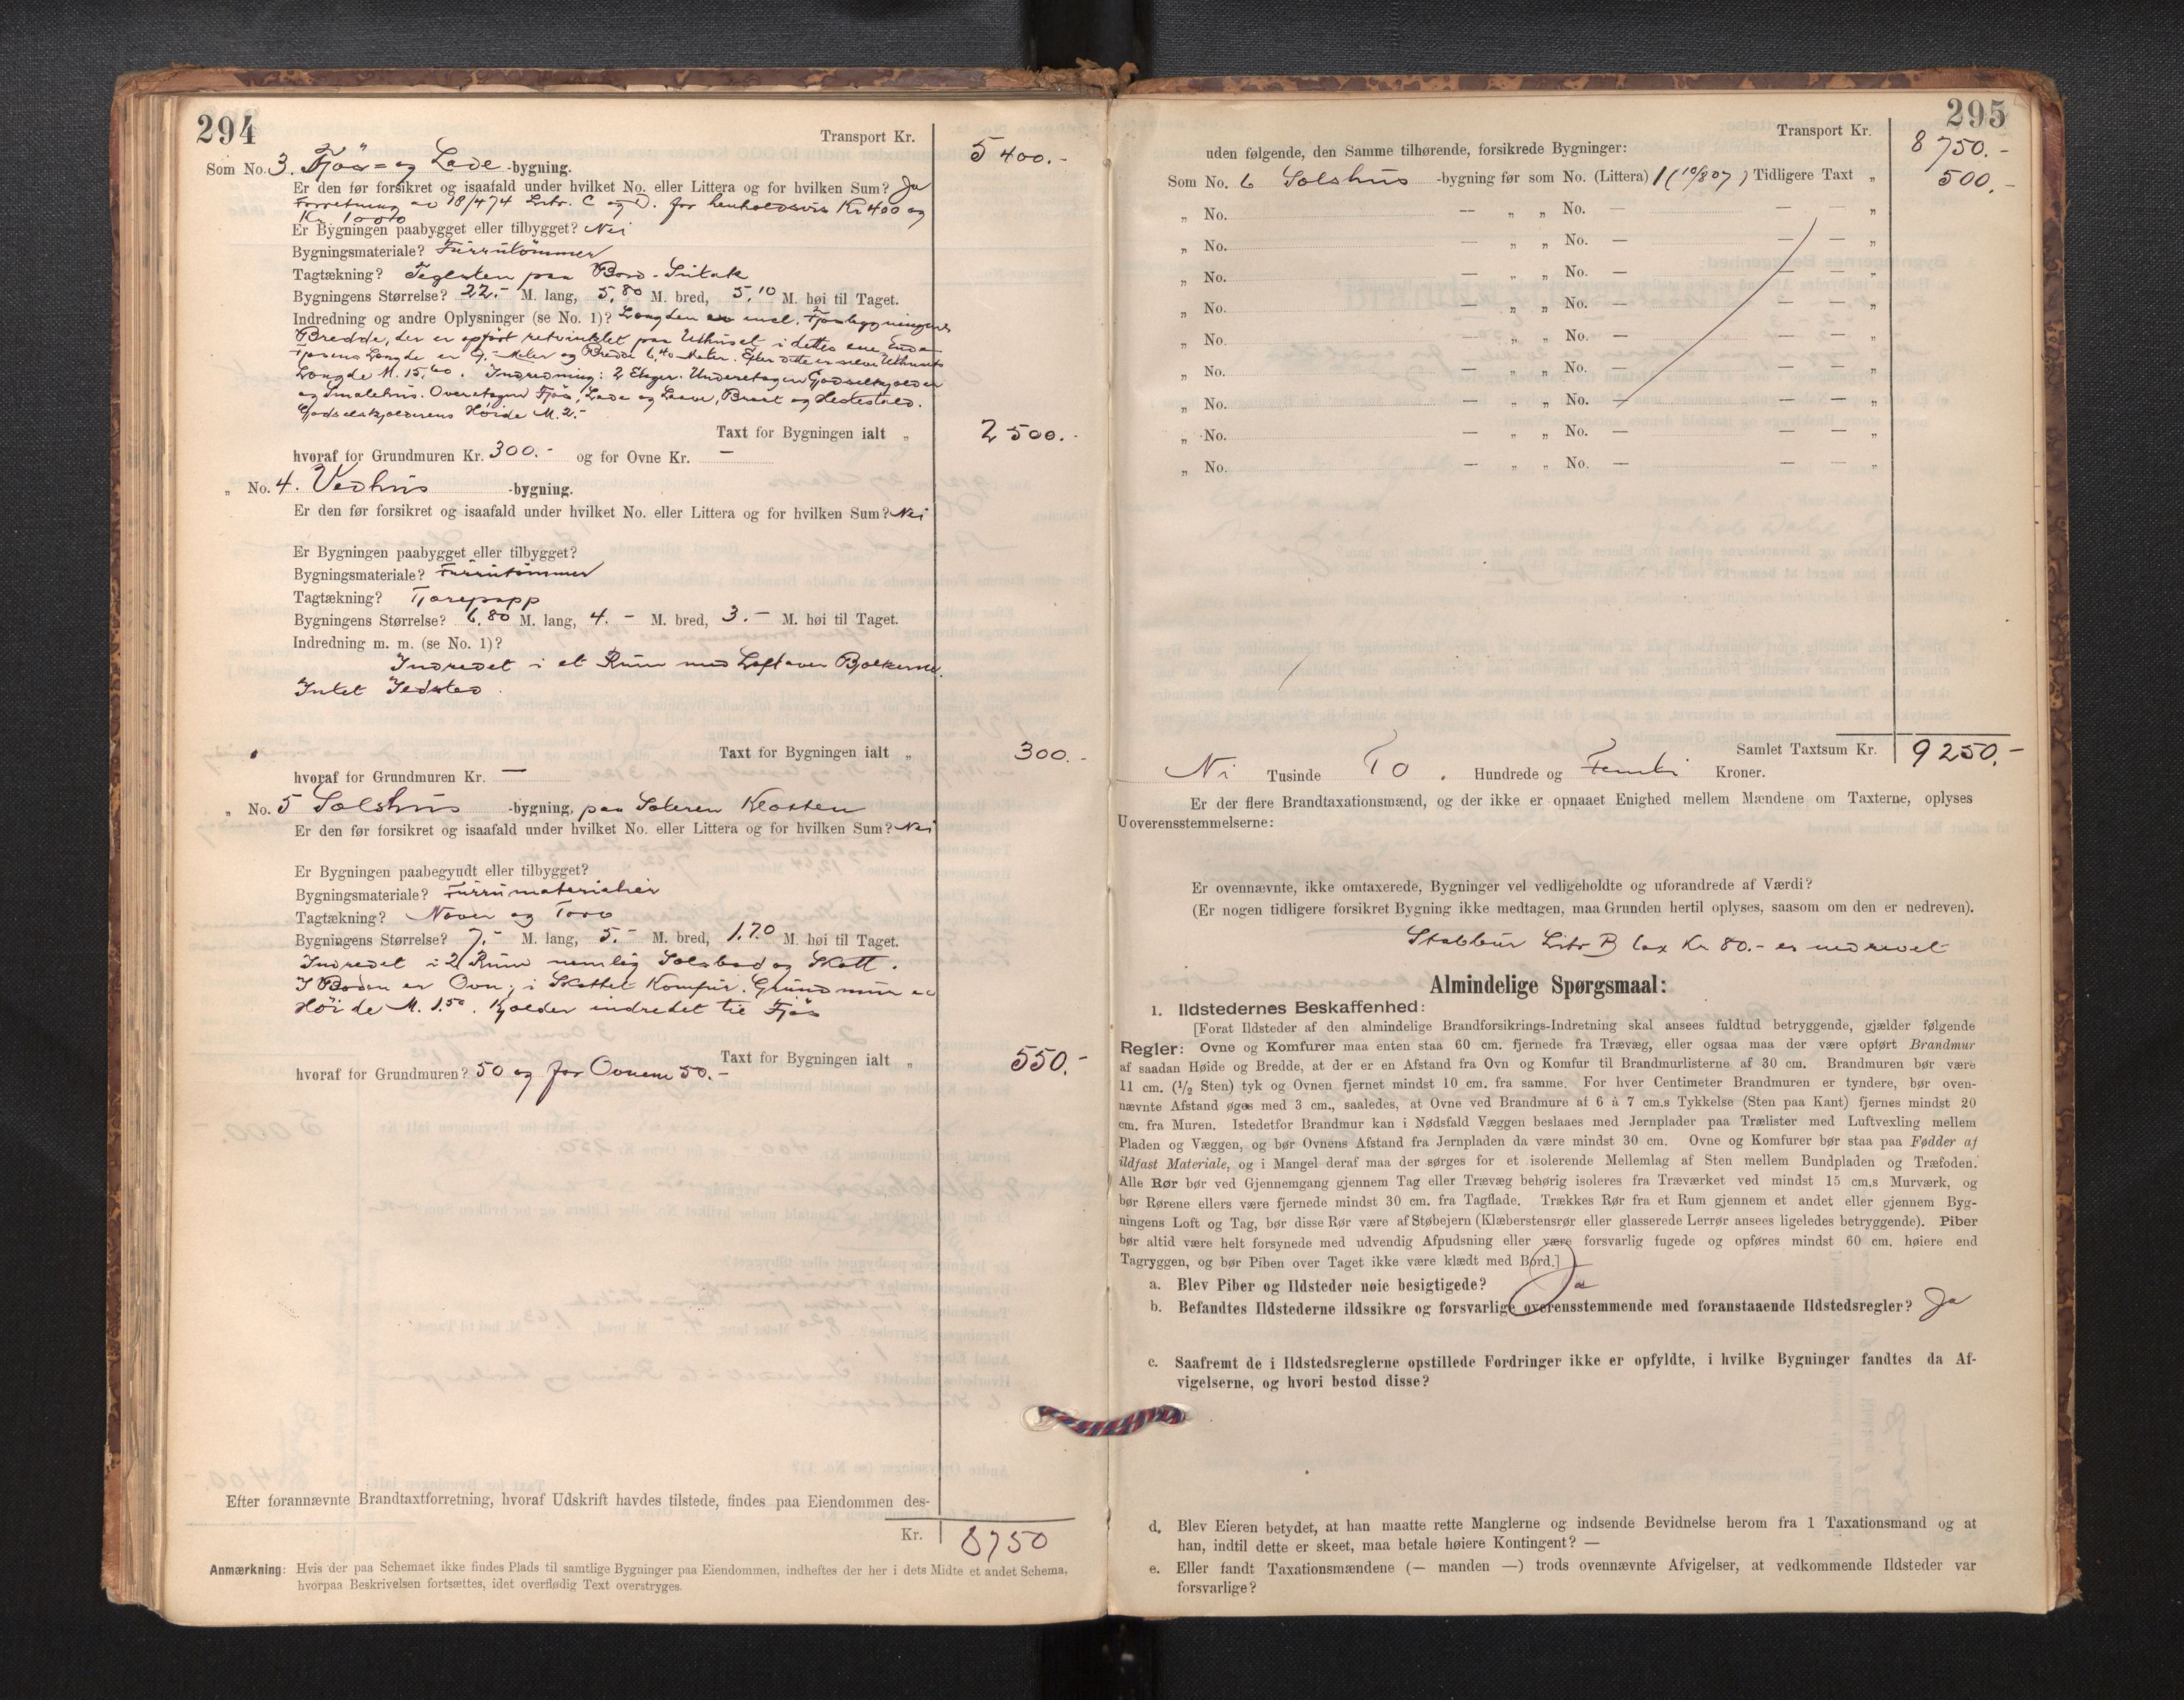 294
Transport Kr. 5400.-
Som No. 3. Fjøs- og Lade -bygning.
Er den før forsikret og isaafald under hvilket No. eller Littera og for hvilken Sum? Ja
Forretning av 18/4 74 Litr. C og D. for henholdsvis Kr 400 og
Kr. 1000
Er Bygningen paabygget eller tilbygget? Nei
Bygningsmateriale? Furrutømmer
Tagtækning? Teglsten paa Bord-Sutak
Bygningens Størrelse? 22.- M. lang, 5,80 M. bred, 5,10 M. høi til Taget.
Indredning og andre Oplysninger (se No. 1)? Længden er incl. Fjøsbygningens
Bredde, der er opført retvinklet paa Uthuset i dettes ene Ende
Fjøsens Længde er 9,- Meter og Bredde 6,40 Meter. Efter dette er selve Uthusets
Længde M. 15,60. Indredning: 2 Etager. Underetagen Gjødselkjælder
og Smalehus. Overetagen Fjøs, Lade og Laave, Braat og Hestestald.
Gjødselskjælderens Høide M. 2.-
Taxt for Bygningen ialt „ 2500.-
hvoraf for Grundmuren Kr. 300.- og for Ovne Kr. —
„ No. 4. Vedhus -bygning.
Er den før forsikret og isaafald under hvilket No. eller Littera og for hvilken Sum? Nei
Er Bygningen paabygget eller tilbygget?
Bygningsmateriale? Furrutømmer
Tagtækning? Tjærepapp
Bygningens Størrelse? 6,80 M. lang, 4.- M. bred, 3.- M. høi til Taget.
Indredning m. m. (se No. 1)?
Indredet i et Rum med Loft over Bjælkerne.
Intet Ildsted.
Taxt for Bygningen ialt „ 300.-
hvoraf for Grundmuren Kr. —
„ No. 5 Sælshus -bygning, paa Sæteren Klosten
Er den før forsikret og isaafald under hvilket No. eller Littera og for hvilken Sum? Nei
Er Bygningen paabegyndt eller tilbygget?
Bygningsmateriale? Furrumaterialier
Tagtækning? Næver og Torv
Bygningens Størrelse? 7.- M. lang, 5.- M. bred, 1.70 M. høi til Taget.
Indredet i 2 Rum nemlig Sælsbod og Skott.
I Boden er Ovn, i Skottet Komfur. Grundmuren
Høide M. 1.50. Kjælder indredet til Fjøs
Taxt for Bygningen ialt „ 550.-
hvoraf for Grundmuren? 50 og for Ovnene 50.-
Efter forannævnte Brandtaxtforretning, hvoraf Udskrift havdes tilstede, findes paa Eiendommen des-
Kr. 8750
Anmærkning: Hvis der paa Schemaet ikke findes Plads til samtlige Bygninger paa Eiendommen, indheftes der her i dets Midte et andet Schema,
hvorpaa Beskrivelsen fortsættes, idet overflødig Text overstryges.
295
Transport Kr. 8750.-
uden følgende, den Samme tilhørende, forsikrede Bygninger:
Som No. 6 Sælshus -bygning før som No. (Littera) 1 (10/8 07) Tidligere Taxt „ 500.-
„ No. — „ „ No. — — — „
„ No. — „ „ No. — — — „
„ No. — „ „ No. — — — „
„ No. — „ „ No. — — — „
„ No. — „ „ No. — — — „
„ No. — „ „ No. — — — „
„ No. — „ „ No. — — — „
„ No. — „ „ No. — — — „
„ No. — „ „ No. — — — „
Samlet Taxtsum Kr. 9250.-
Ni Tusinde To Hundrede og Femti Kroner.
Er der flere Brandtaxationsmænd, og der ikke er opnaaet Enighed mellem Mændene om Taxterne, oplyses
Uoverensstemmelserne:
Er ovennævnte, ikke omtaxerede, Bygninger vel vedligeholdte og uforandrede af Værdi?
(Er nogen tidligere forsikret Bygning ikke medtagen, maa Grunden hertil oplyses, saasom om den er nedreven).
Stabbur Litr B tax Kr 80.- er nedrevet
Almindelige Spørgsmaal:
1. Ildstedernes Beskaffenhed:
[Forat Ildsteder af den almindelige Brandforsikrings-Indretning skal ansees fuldtud betryggende, gjælder følgende
Regler: Ovne og Komfurer maa enten staa 60 cm. fjernede fra Trævæg, eller ogsaa maa der være opført Brandmur
af saadan Høide og Bredde, at der er en Afstand fra Ovn og Komfur til Brandmurlisterne af 30 cm. Brandmuren bør være
11 cm. (1/2 Sten) tyk og Ovnen fjernet mindst 10 cm. fra samme. For hver Centimeter Brandmuren er tyndere, bør oven-
nævnte Afstand øges med 3 cm., saaledes, at Ovne ved Brandmure af 6 à 7 cm.s Tykkelse (Sten paa Kant) fjernes mindst 20
cm. fra Muren. Istedetfor Brandmur kan i Nødsfald Væggen beslaaes med Jernplader paa Trælister med Luftvexling mellem
Pladen og Væggen, og bør Ovnens Afstand fra Jernpladen da være mindst 30 cm. Ovne og Komfurer bør staa paa Fødder af
ildfast Materiale, og i Mangel deraf maa der sørges for et isolerende Mellemlag af Sten mellem Bundpladen og Træfoden.
Alle Rør bør ved Gjennemgang gjennem Tag eller Trævæg behørig isoleres fra Træværket ved mindst 15 cm.s Murværk, og
bør Rørene ellers være fjernede mindst 30 cm. fra Tagflade. Trækkes Rør fra et Rum gjennem et andet eller gjennem Byg-
ningens Loft og Tag, bør disse Rør være af Støbejern (Klæberstensrør eller glasserede Lerrør ansees ligeledes betryggende). Piber
bør altid være helt forsynede med udvendig Afpudsning eller være forsvarlig fugede og opføres mindst 60 cm. høiere end
Tagryggen, og bør Piben over Taget ikke være klædt med Bord.]
a. Blev Piber og Ildsteder nøie besigtigede? Ja
b. Befandtes Ildstederne ildssikre og forsvarlige overensstemmende med foranstaaende Ildstedsregler? Ja
c. Saafremt de i Ildstedsreglerne opstillede Fordringer ikke er opfyldte, i hvilke Bygninger fandtes da Af-
vigelserne, og hvori bestod disse?
d. Blev Eieren betydet, at han maatte rette Manglerne og indsende Bevidnelse herom fra 1 Taxationsmand og at
han, indtil dette er skeet, maa betale høiere Kontingent? —
e. Eller fandt Taxationsmændene (— manden —) trods ovennævnte Afvigelser, at vedkommende Ildsteder var
forsvarlige?